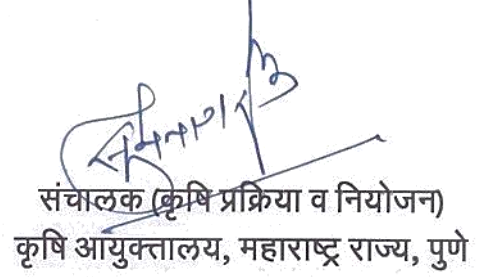 संचालक (कृषि प्रक्रिया व नियोजन)
कृषि आयुक्तालय, महाराष्ट्र राज्य, पुणे